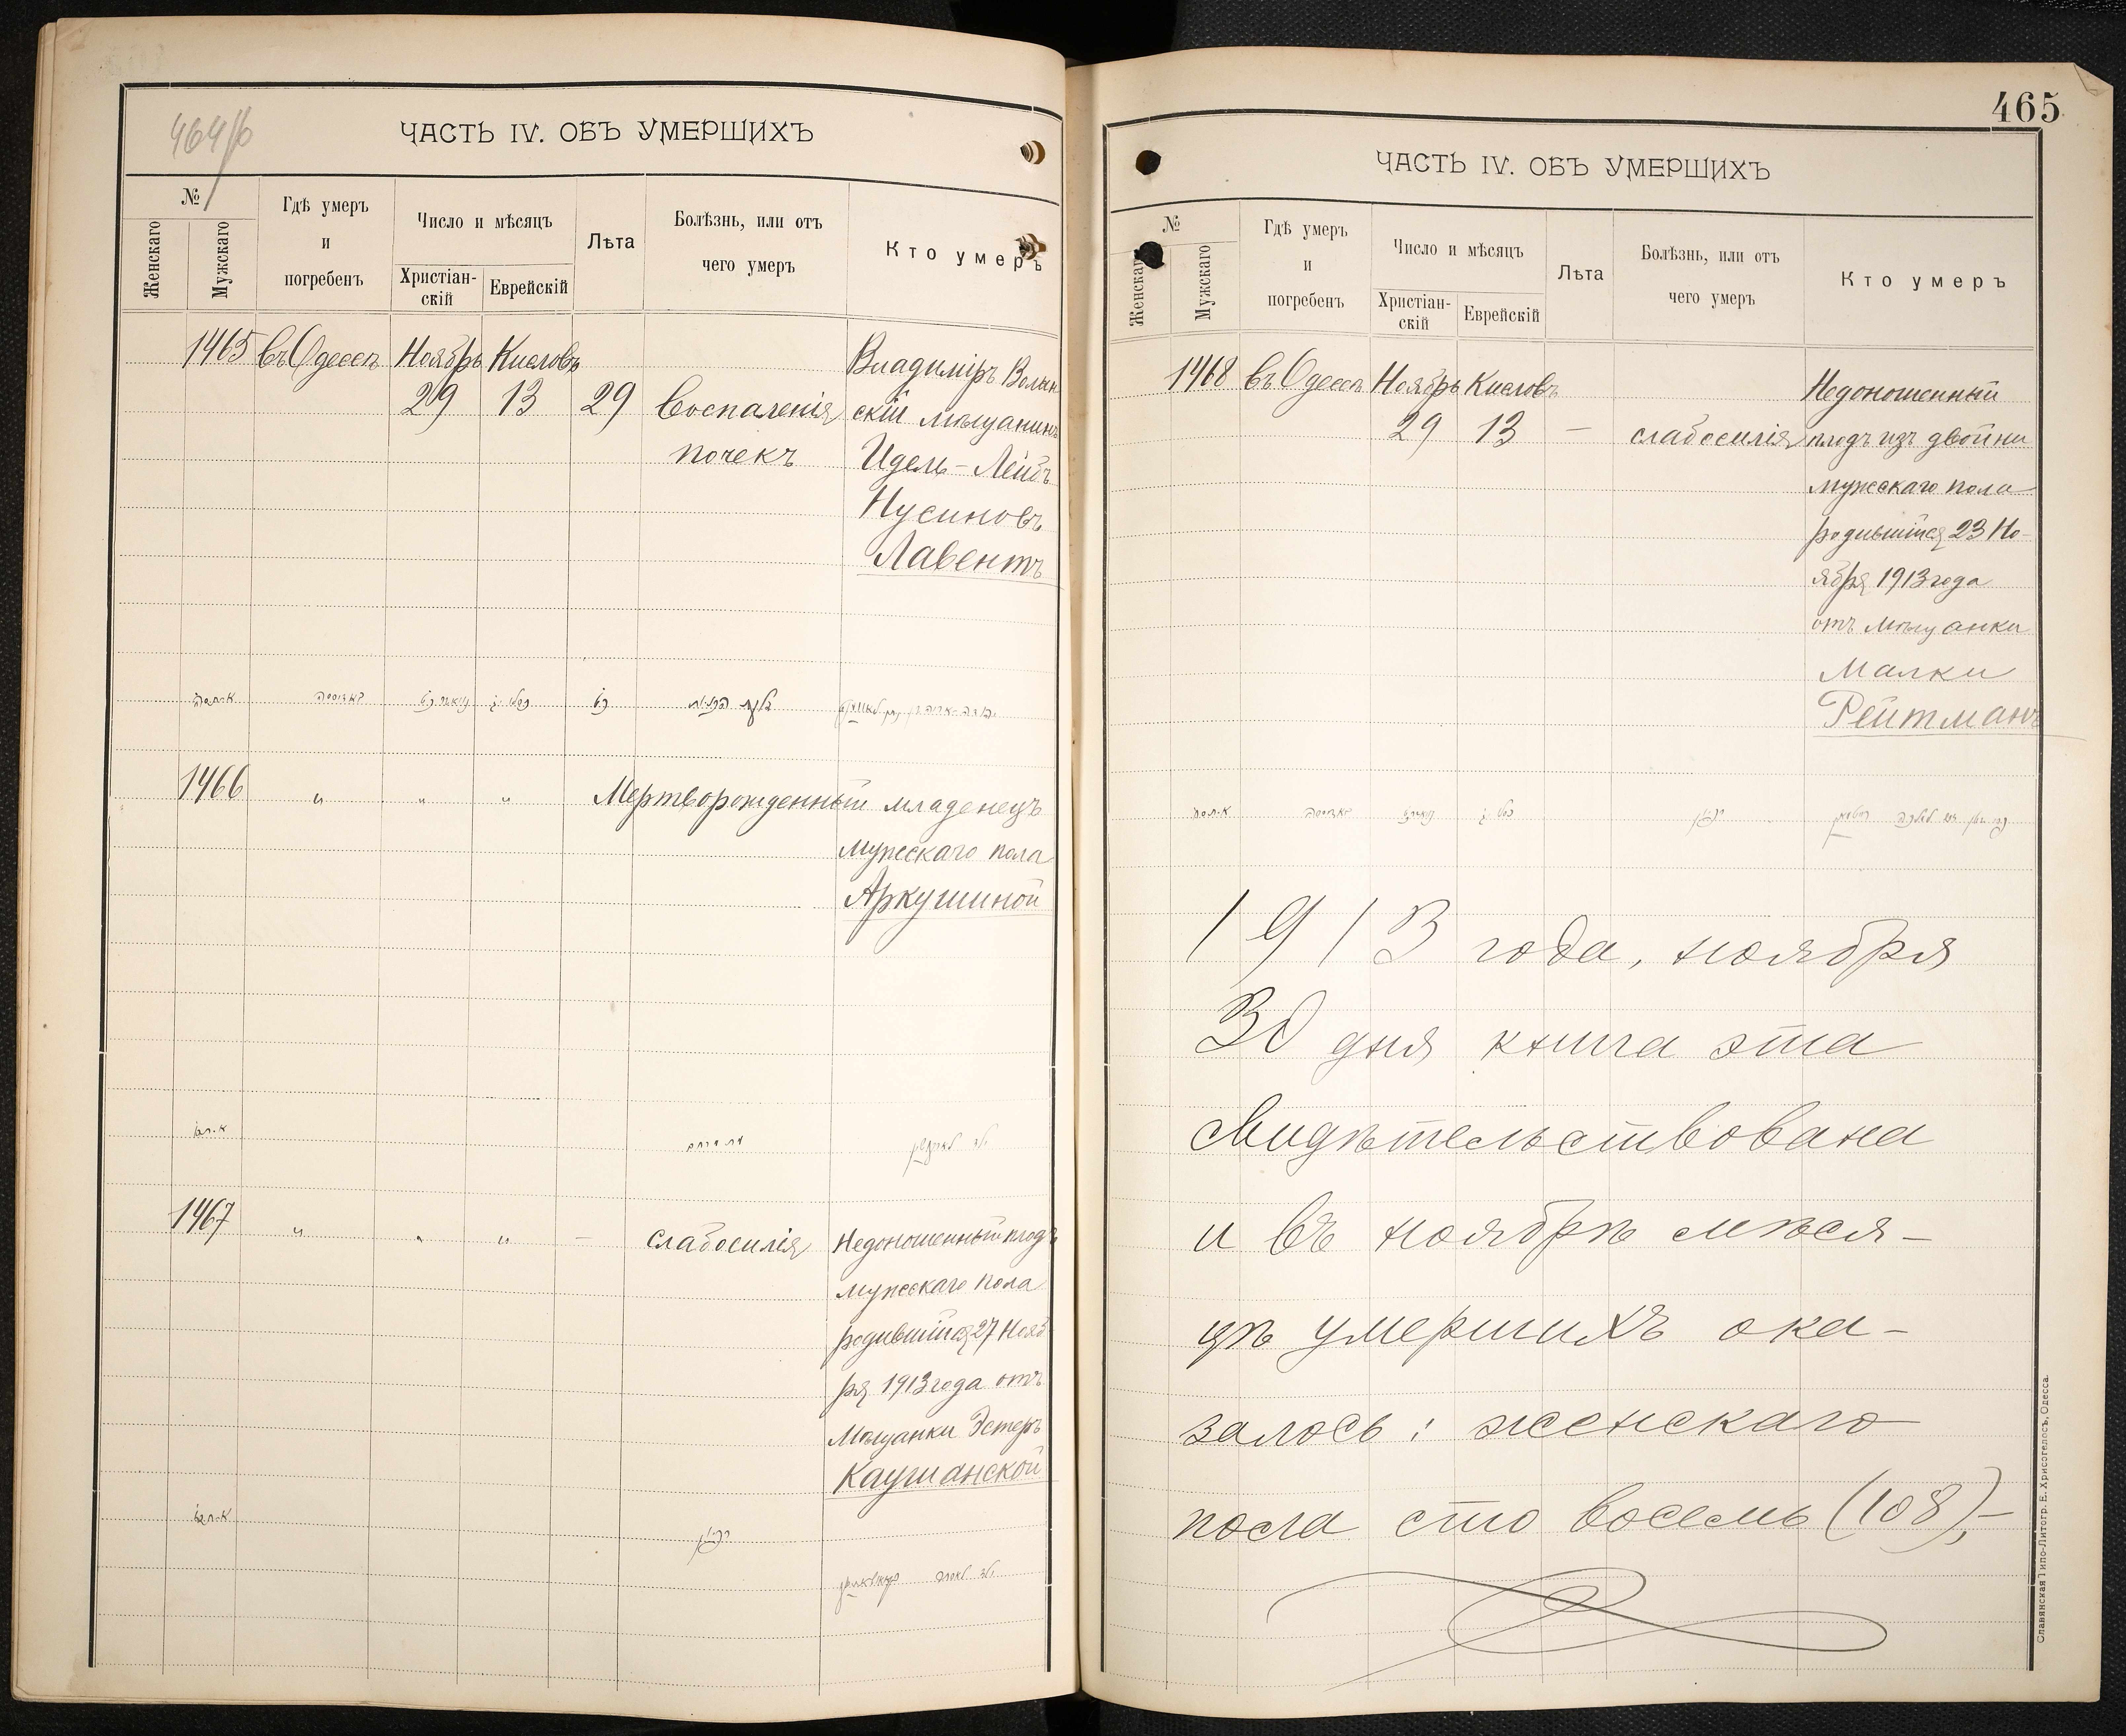 464/б
ЧАСТЬ IV. ОБЪ УМЕРШИХЪ
№
Женскаго
Мужскаго
Гдѣ умеръ
и
погребенъ
Число и мѣсяцъ
Христіан-
скій
Еврейскій
Лѣта
Болѣзнь, или отъ
чего умеръ
Кто умеръ
1465 въ Одессѣ Ноябрь Кисловъ Владиміръ Волын
29 13 29 Воспаленія скій мѣщанинъ
почекъ Идель-Лейбъ
Нусиновъ
Лавентъ
1466 " " " Мертворожденный младенецъ
мужескаго пола
Аркушиной
1467 " " " — слабосилія Недоношенный плодъ
мужескаго пола
родившійся 27 Нояб
ря 1913 года отъ
Мѣщанки Эстеръ
Каушанской
465
ЧАСТЬ IV. ОБЪ УМЕРШИХЪ
№
Женскаго
Мужскаго
Гдѣ умеръ
и
погребенъ
Число и мѣсяцъ
Христіан-
скій
Еврейскій
Лѣта
Болѣзнь, или отъ
чего умеръ
Кто умеръ
1468 въ Одессѣ Ноябрь Кисловъ Недоношенный
29 13 — слабосилія плодъ изъ двойни
мужескаго пола
родившійся 23 Но-
ября 1913 года
отъ мѣщанки
Малки
Рейтманъ
1913 года, ноября
30 дня книга эта
свидѣтельствована
и въ ноябрѣ мѣся-
цѣ умершихъ ока-
залось: женскаго
пола сто восемь (108),—
Славянская Типо-Литогр. Е. Хрисогелосъ, Одесса.